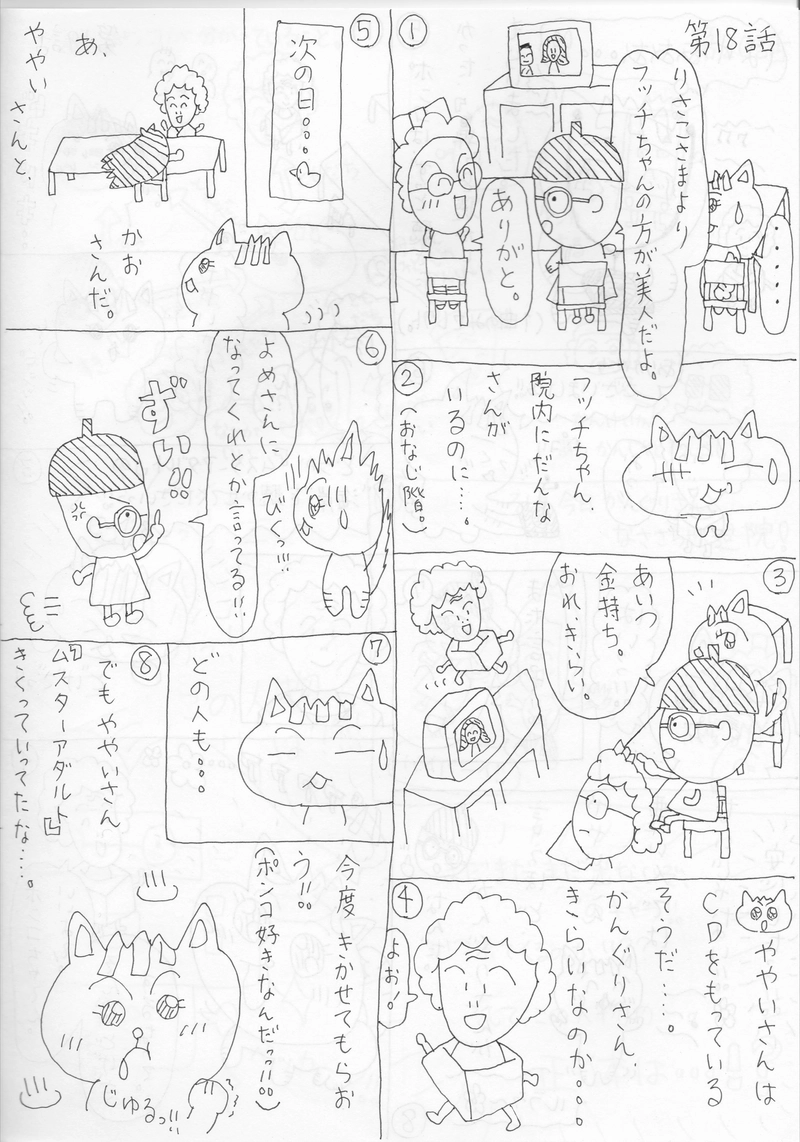 第18話
①
りさこさまより
フッチちゃんの方が美人だよ。
ありがと。
・・・・・
②
フッチちゃん、
院内にだんな
さんが
いるのに…。
(おなじ階。)
③
あいつ
金持ち。
おれ、きらい。
④
ややいさんは
CDをもっている
そうだ…。
かんぐりさん、
きらいなのか。。。
よお！
⑤
次の日。。。
あ、
ややい
さんと、
かお
さんだ。
⑥
よめさんに
なってくれとか言ってる!!
びくっ!!!
ずい!!!
⑦
どの人も。。。
⑧
でもややいさん
『ムスターアダルト』
きくっていってたな…。
今度きかせてもらお
う!!
(ポンコ好きなんだっ!!)
じゅるっ!!